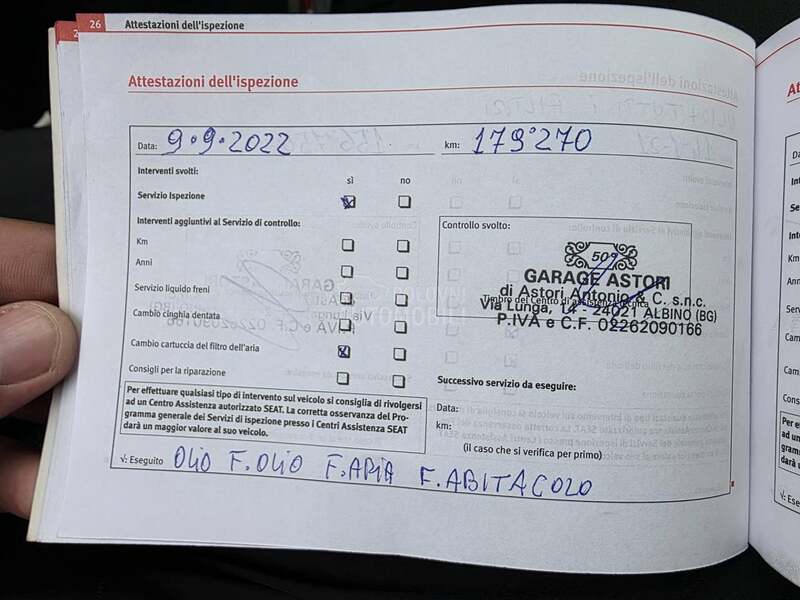 26 Attestazioni dell'ispezione
Attestazioni dell'ispezione
Data: 9.9.2022 km: 179°270
Interventi svolti:
sì no
Servizio Ispezione
Interventi aggiuntivi al Servizio di controllo:
Controllo svolto:
Km
Anni
Servizio liquido freni
Cambio cinghia dentata
Cambio cartuccia del filtro dell'aria
Consigli per la riparazione
509
GARAGE ASTORI
di Astori Antonio & C. s.n.c.
Timbro del Centro di assistenza tecnica
Via Lunga, 14 - 24021 ALBINO (BG)
P.IVA e C.F. 02262090166
Successivo servizio da eseguire:
Data:
km:
(il caso che si verifica per primo)
Per effettuare qualsiasi tipo di intervento sul veicolo si consiglia di rivolgersi
ad un Centro Assistenza autorizzato SEAT. La corretta osservanza del Pro-
gramma generale dei Servizi di ispezione presso i Centri Assistenza SEAT
darà un maggior valore al suo veicolo.
√: Eseguito OLIO F.OLIO F.ARIA F.ABITACOLO